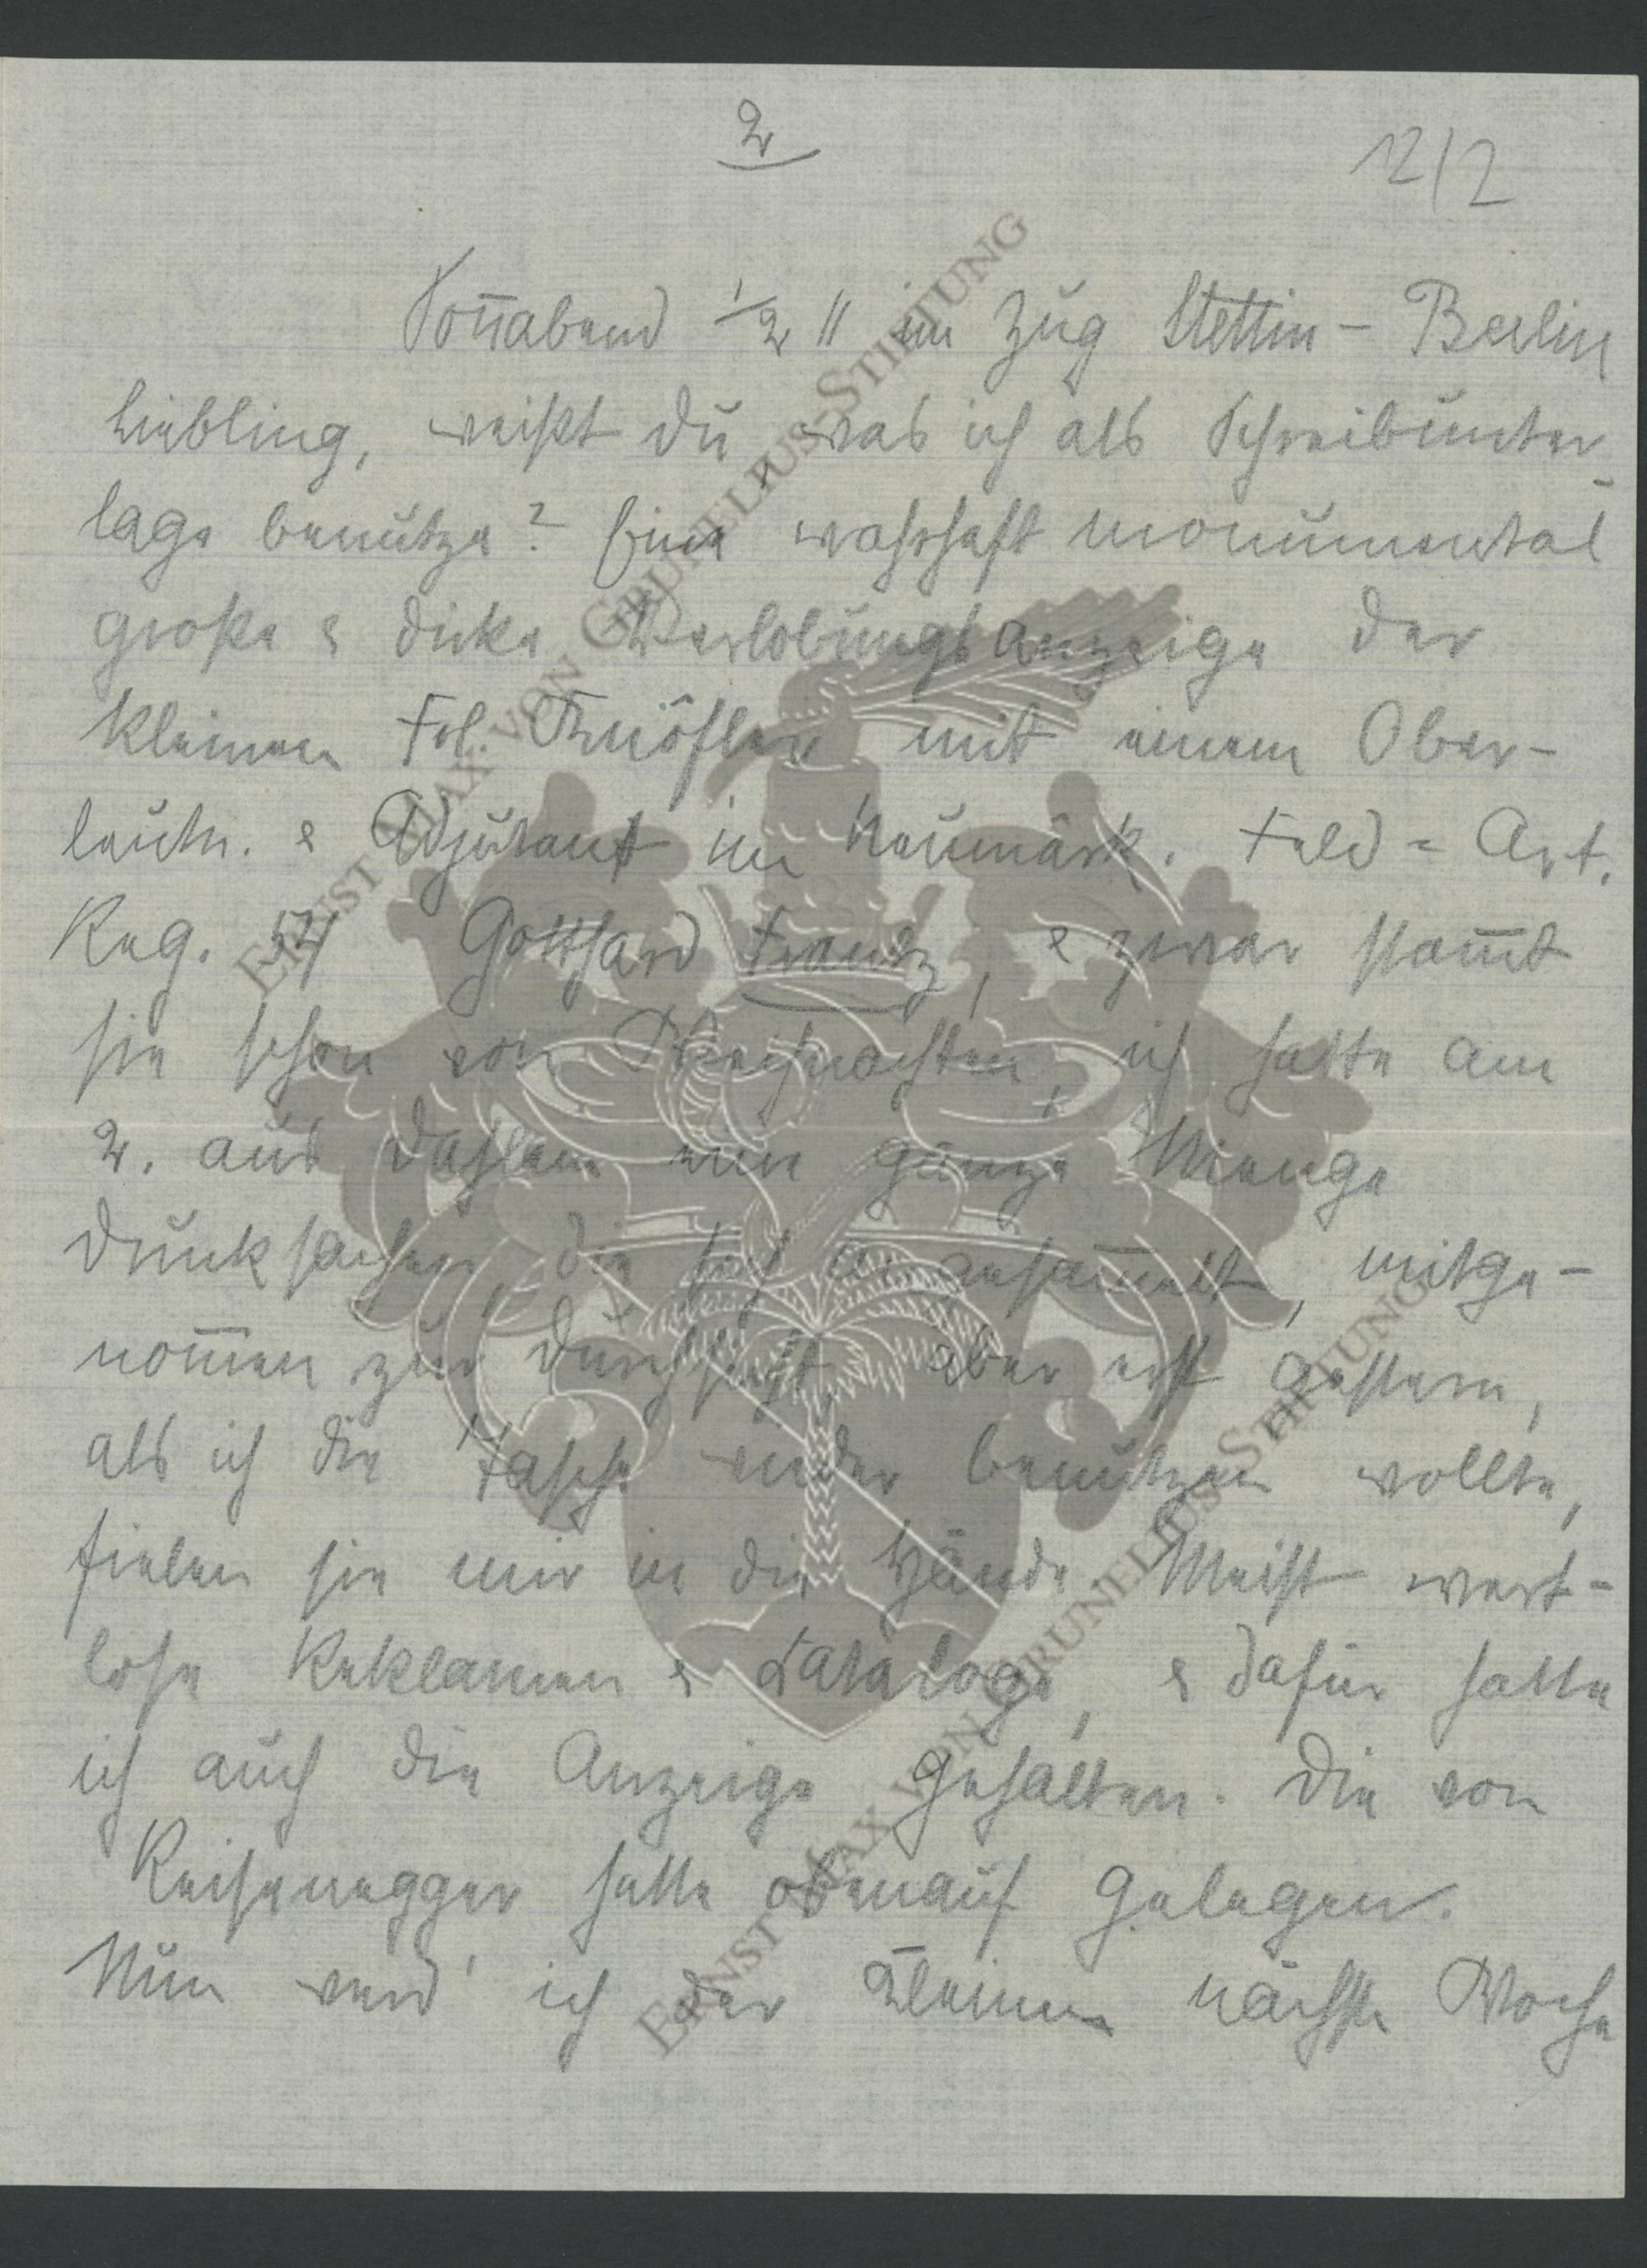 2
12/2
Sonnabend 1/2 11 im Zug Stettin – Berlin
Liebling, weißt du, was ich als Schreibunter-
lage benutze? Eine wahrhaft monumental
große & dicke Verlobungsanzeige der
kleinen Frl. mit einem Ober-
leutn. & Adjutant im Neumärk. Feld = Art.
Reg. 54 Gotthard Frantz, & zwar stam̅t
sie schon von Weihnachten, ich hatte am
2. aus Dahlem eine ganze Menge
Drucksachen, die sich angesam̅elt, mitge-
nom̅en zur Durchsicht, aber erst gestern,
als ich die Tasche wieder benutzen wollte,
fielen sie mir in die Hände. Meist wert-
lose Reklamen & Kataloge, & dafür hatte
ich auch die Anzeige gehalten. Die von
Reisenegger hatte obenauf gelegen.
Nun werd' ich der Kleinen nächste Woche
ERNST MAX VON GRUNELIUS-STIFTUNG
ERNST MAX VON GRUNELIUS-STIFTUNG